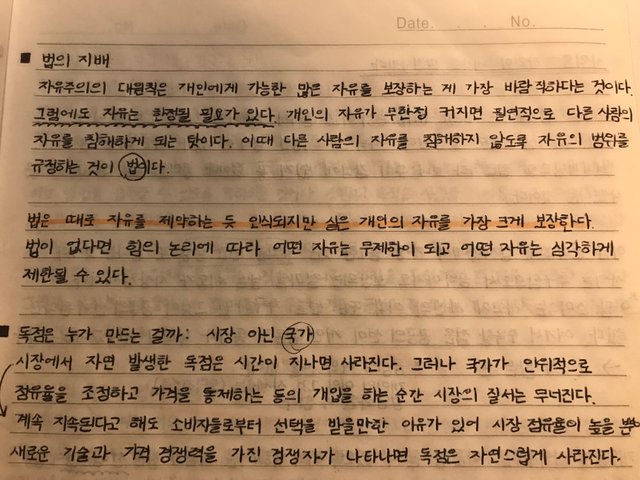 Date. . . No.
■ 법의 지배
자유주의의 대원칙은 개인에게 가능한 많은 자유를 보장하는 게 가장 바람직하다는 것이다.
그럼에도 자유는 한정될 필요가 있다. 개인의 자유가 무한정 커지면 필연적으로 다른 사람의
자유를 침해하게 되는 탓이다. 이때 다른 사람의 자유를 침해하지 않도록 자유의 범위를
규정하는 것이 법이다.
법은 때로 자유를 제약하는 듯 인식되지만 실은 개인의 자유를 가장 크게 보장한다.
법이 없다면 힘의 논리에 따라 어떤 자유는 무제한이 되고 어떤 자유는 심각하게
제한될 수 있다.
■ 독점은 누가 만드는 걸까: 시장 아닌 국가
시장에서 자연 발생한 독점은 시간이 지나면 사라진다. 그러나 국가가 인위적으로
점유율을 조정하고 가격을 통제하는 등의 개입을 하는 순간 시장의 질서는 무너진다.
계속 지속된다고 해도 소비자들로부터 선택을 받을만한 이유가 있어 시장 점유율이 높을 뿐
새로운 기술과 가격 경쟁력을 가진 경쟁자가 나타나면 독점은 자연스럽게 사라진다.